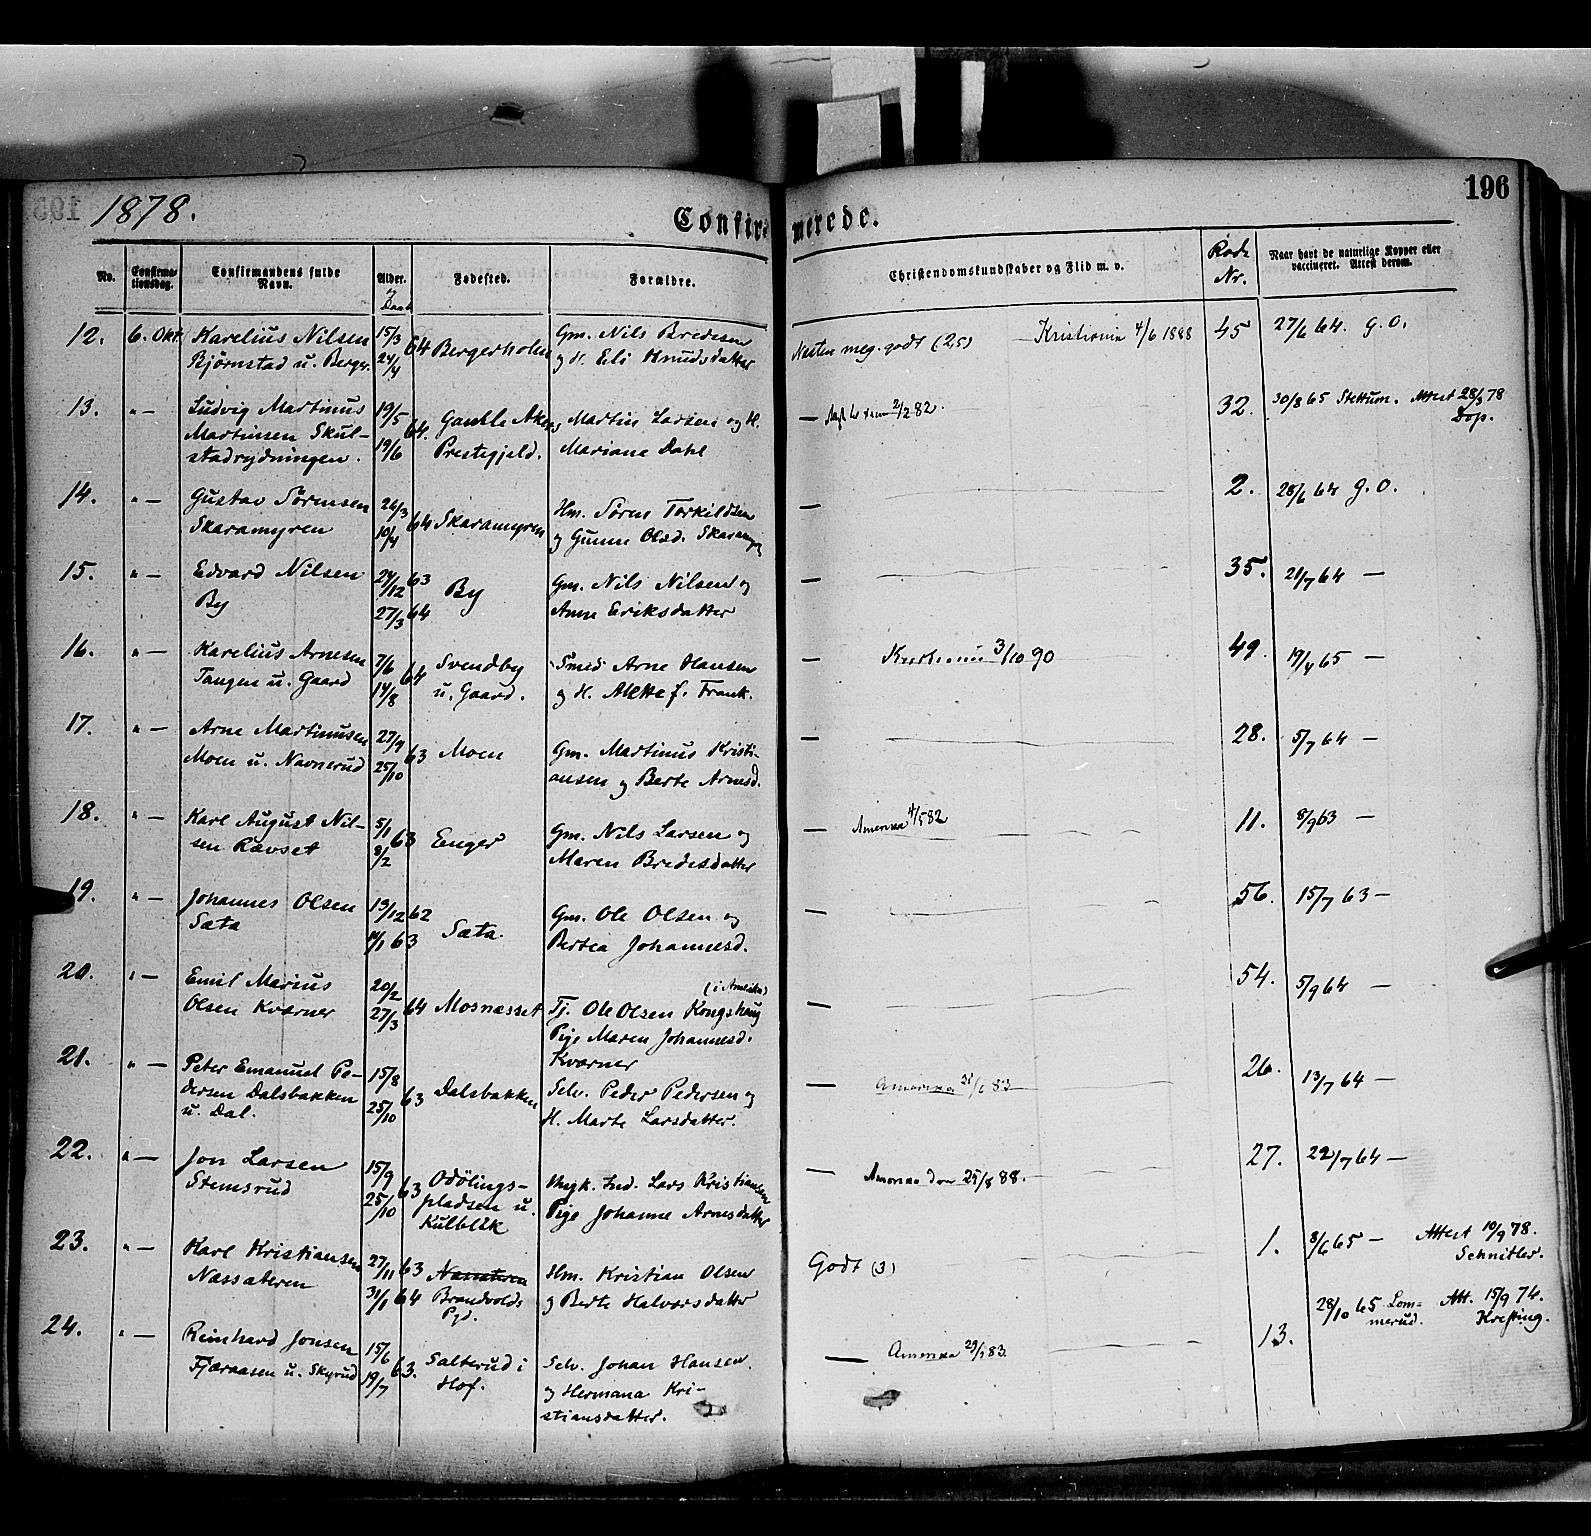 1878.
Confirmerede.
196
No.
Confirmationsdag.
Confirmandens fulde Navn.
Alder.
og Daab
Fødested.
Forældre.
Christendomskundskaber og Flid m. v.
Rode Nr.
Naar havt de naturlige Kopper eller vaccineret. Attest derom.
12. 6. Okt. Karelius Nilsen 15/3 64 Bergerholm Gm. Nils Bredesen Nesten meg. godt (2,5) Kristiania 4/6 1888 45 27/6 64. G.O.
Bjørnstad u. Berger. 24/4 og H. Eli Knudsdatter
13. " — Ludvig Martinus 19/5 64. Gamle Akers Martin Larsen og H. — 2/2 82. 32. 30/8 65 Stettum. Attest 28/3 78
Martinsen Skul- 19/6 Prestegjeld. Mariane Dahl Dop.
stadrydningen.
14. " — Gustav Sørensen 26/3 64 Skaramyren Hm. Søren Torkildsen — 2. 28/6 64 G.O.
Skaramyren 10/4 og Gunne Olsd. Skaramyr
15. " — Edvard Nilsen 29/12 63 By Gm. Nils Nilsen og — 35. 21/7 64 —
By 27/3 64 Anne Eriksdatter
16. " — Karelius Arnesen 7/6 64 Svendby Smed Arne Hansen — Kristiania 3/10 90 49. 19/4 65 —
Tangen u. Gaard 14/8 u. Gaard. og H. Alette f. Frank.
17. " — Arne Martinusen 27/9 63 Moen Gm. Martinus Kristi- — 28. 5/7 64 —
Moen u. Navnerud 25/10 ansen og Berte Arnesd.
18. " — Karl August Nil- 5/1 63 Enger Gm. Nils Larsen og — Amerika 4/5 82 11. 8/9 63 —
sen Ravset 8/2 Maren Bredesdatter
19. " — Johannes Olsen 19/12 62 Sæta. Gm. Ole Olsen og — 56. 15/7 63 —
Sæta 11/1 63 Bertea Johannesd.
20. " — Emil Marius 20/2 64 Mosnæsset (i Amerika) — 54. 5/9 64 —
Olsen Kværner 27/3 Tj. Ole Olsen Kongshaug
Pige Maren Johannesd.
Kværner
21. " — Peter Emanuel Pe- 15/8 63 Dalsbakken Selv. Peder Pedersen og — Amerika 83 26. 13/7 64 —
dersen Dalsbakken 25/10 H. Marte Larsdatter.
u. Dal.
22. " — Jon Larsen 15/9 63 Odölings- Ungk. Ind. Lars Kristiansen — Amerika den 25/8 88. 27. 22/7 64 —
Stemsrud 25/10 pladsen u. Pige Johanne Arnesdatter
Kulblik
23. " — Karl Kristiansen 27/11 63 Næssæteren Hm. Kristian Olsen Godt (3) 1. 8/6 65 — Attest 10/9 78.
Næssæteren 31/1 64 Brandvolds og Berte Halvorsdatter Schnitler.
Pgd.
24. " — Reinhard Jonsen 15/6 63. Salterud i Selv. Johan Hansen. — Amerika 83. 13. 28/10 65 Lom- Att. 15/9 74.
Fjæraasen u. Skyrud 19/7 Hof. og Hermana Kri- merud. Krefting.
stiansdatter.